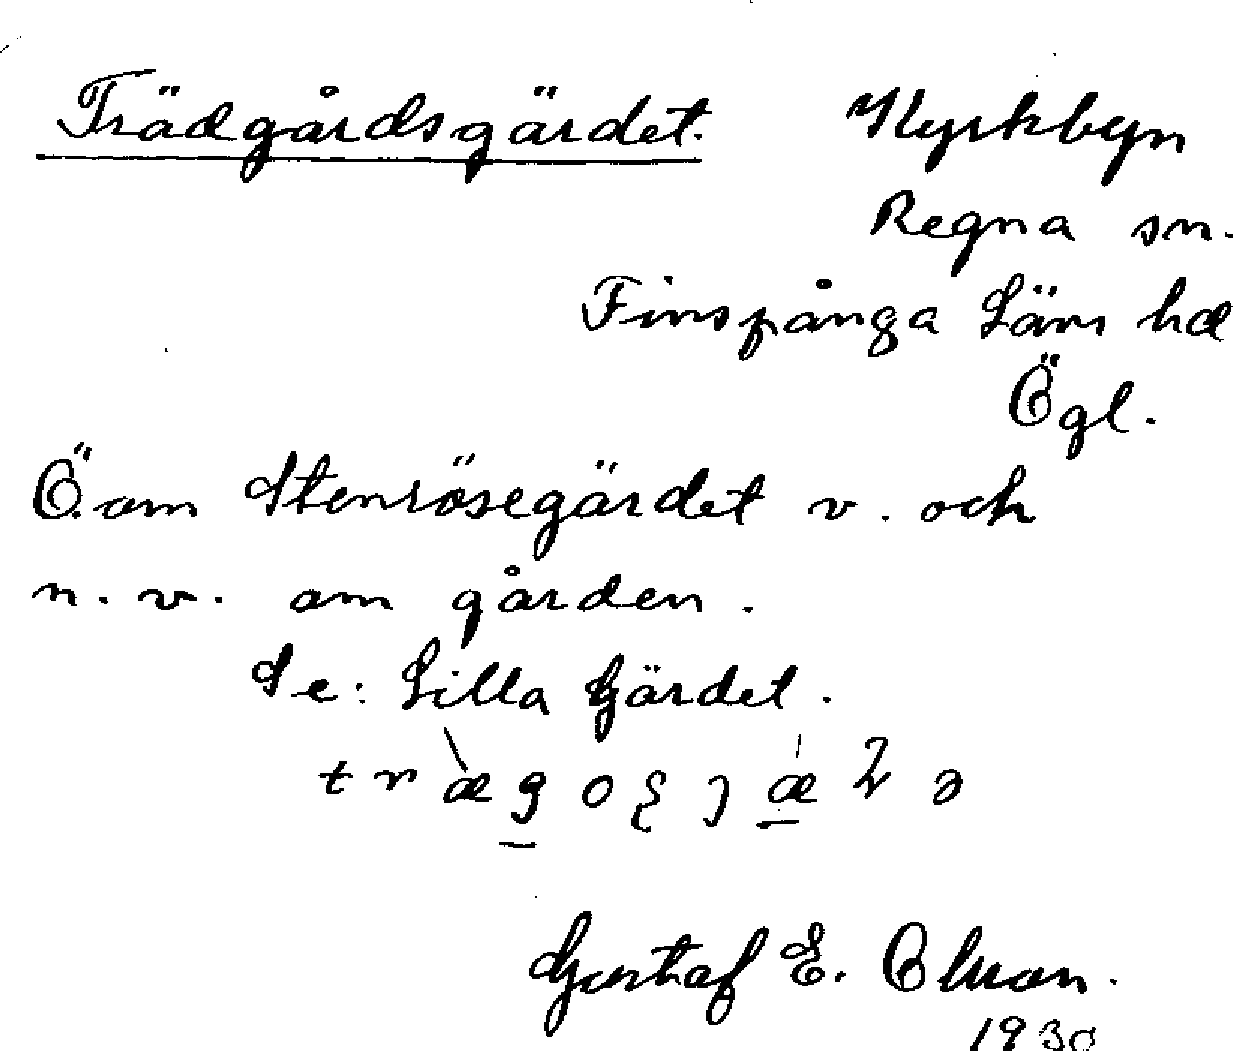 Trädgårdsgärdet. Kyrkbyn
Regna sn.
Finspånga Läns hd
Ögl.
Ö. om Stenrösegärdet v. och
n. v. om gården.
Se: Lilla Gärdet.
Gustaf E. Olson.
1930